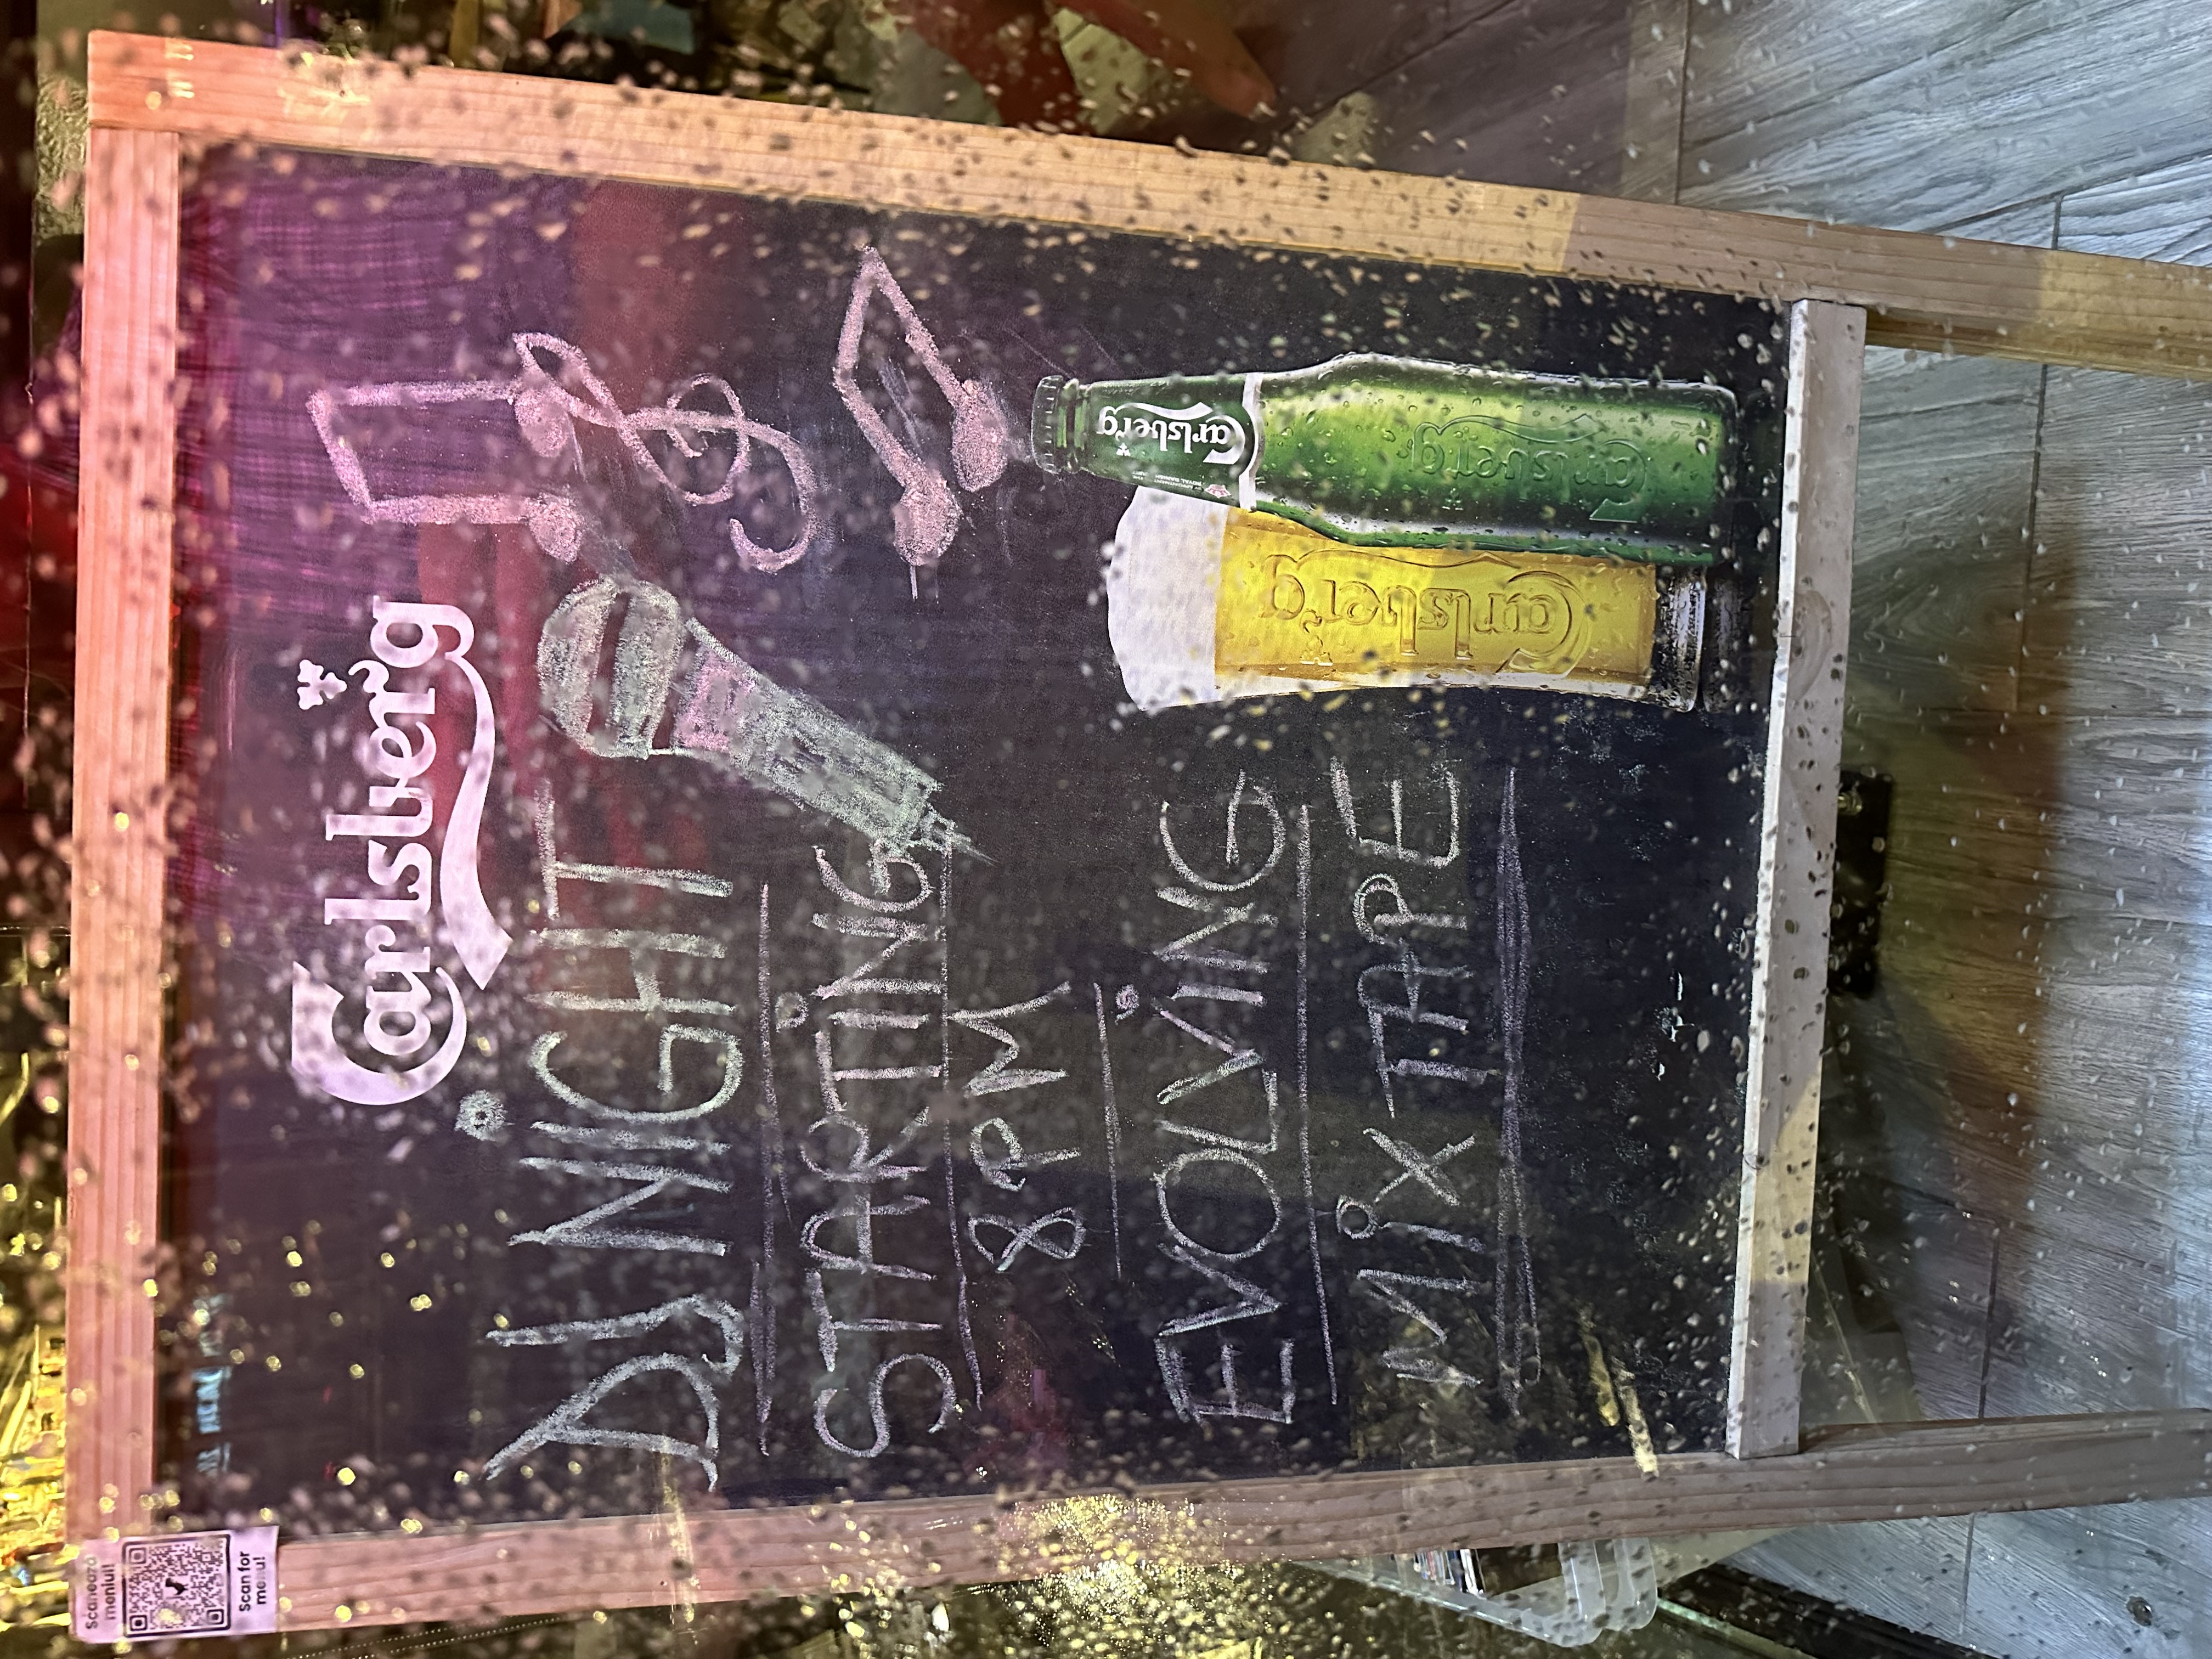 Scanează
meniul!
Scan for
menu!
Carlsberg
DJ NIGHT
STARTING
8 PM
EVOLVING
MIX TAPE
Carlsberg
Carlsberg
Carlsberg